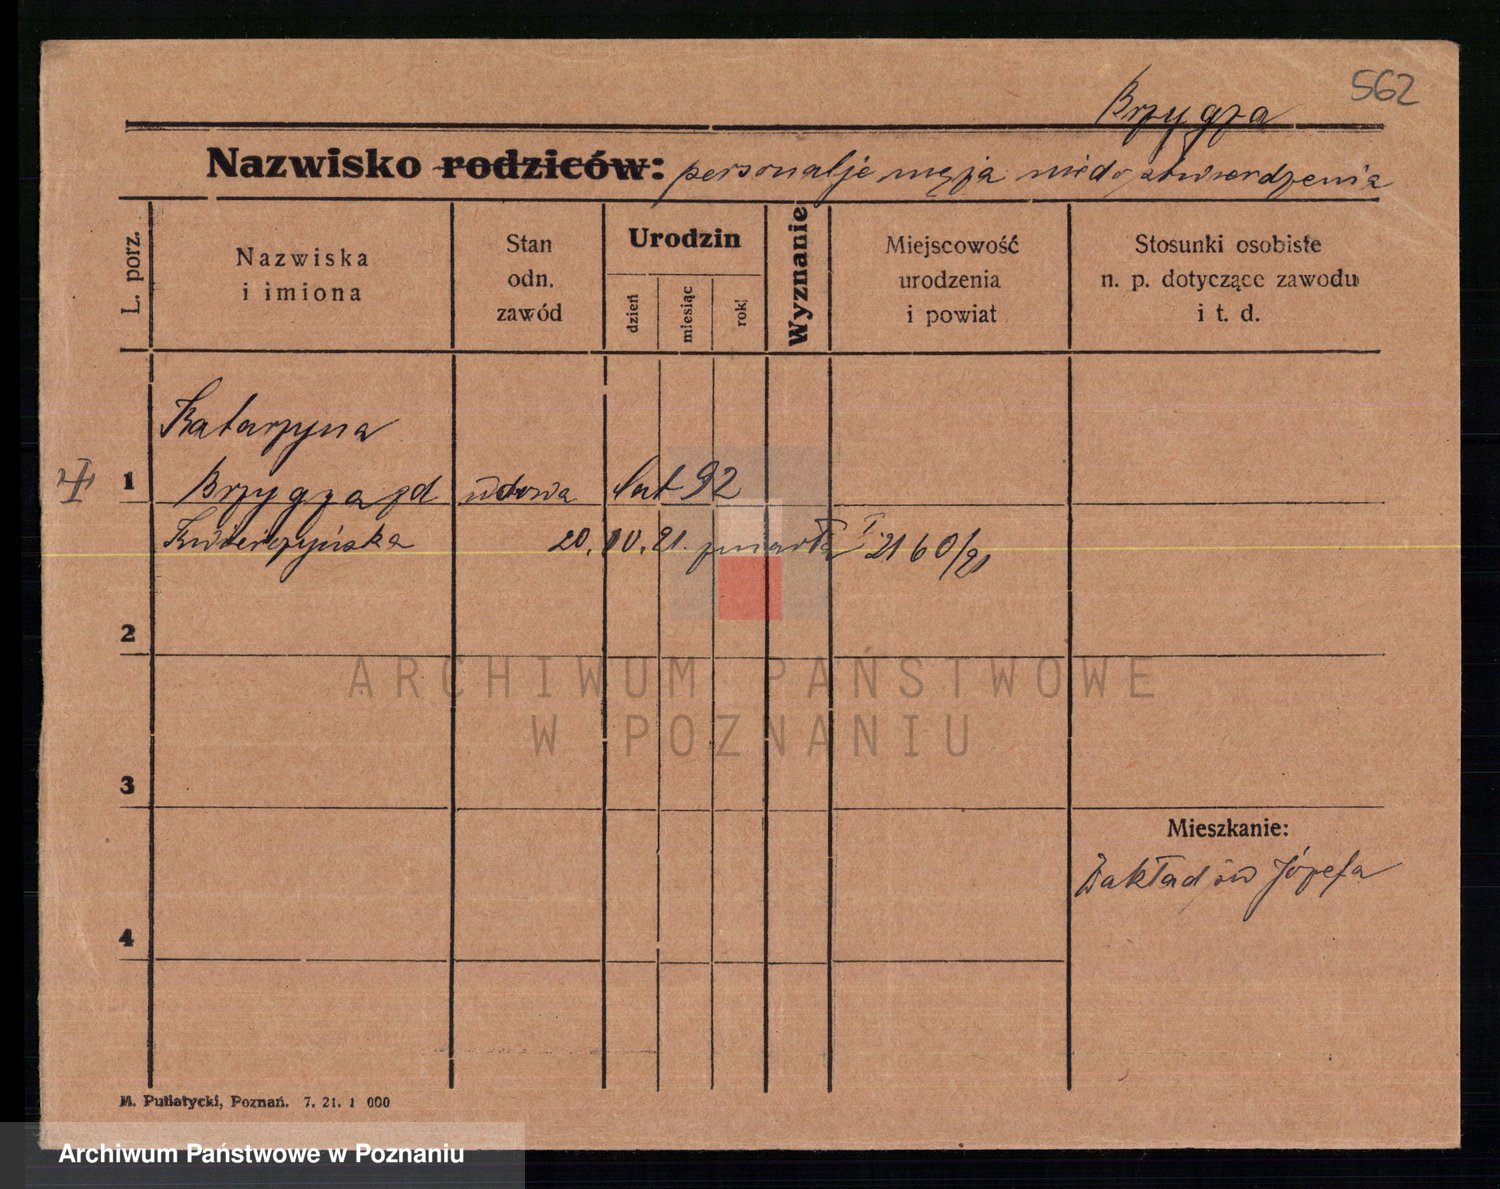 562
Brzygza
Nazwisko rodziców: personalje męża niedo stwierdzenia
L. porz.
Nazwiska
i imiona
Stan
odn.
zawód
Urodzin
dzień
miesiąc
rok
Wyznanie
Miejscowość
urodzenia
i powiat
Stosunki osobiste
n. p. dotyczące zawodu
i t. d.
Katarzyna
1 Brzygza wdowa lat 92
20. 10. 21. zmarła 2160/21
2
3
4
Mieszkanie:
Zakład św Józefa
ARCHIWUM PAŃSTWOWE
W POZNANIU
M. Putiatycki, Poznań. 7. 21. 1 000
Archiwum Państwowe w Poznaniu